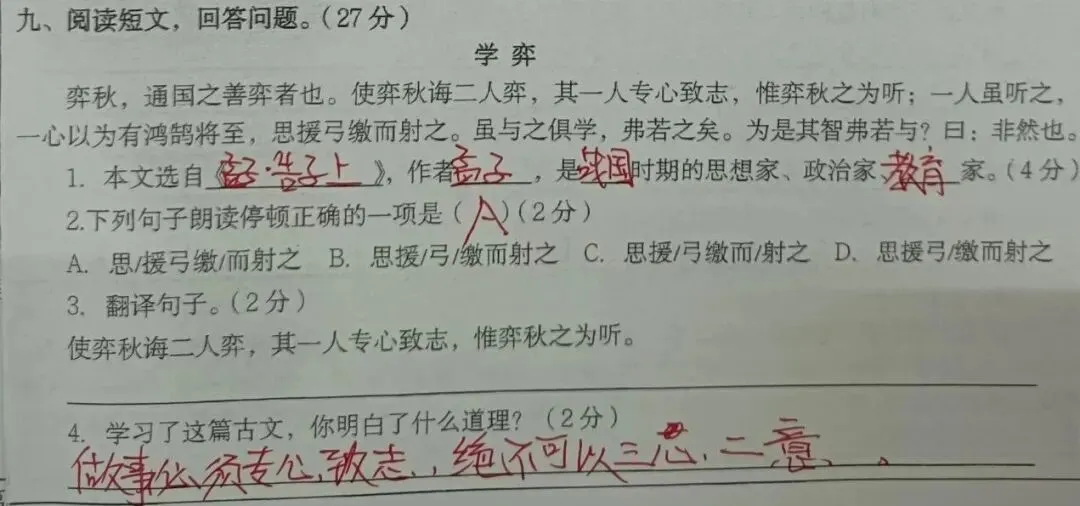 九、阅读短文，回答问题。(27分)
学 弈
弈秋，通国之善弈者也。使弈秋诲二人弈，其一人专心致志，惟弈秋之为听；一人虽听之，
一心以为有鸿鹄将至，思援弓缴而射之。虽与之俱学，弗若之矣。为是其智弗若与？曰：非然也。
1. 本文选自《孟子·告子上》，作者孟子，是战国时期的思想家、政治家、教育家。(4分)
2.下列句子朗读停顿正确的一项是(A)(2分)
A. 思/援弓缴/而射之 B. 思援/弓/缴而射之 C. 思援/弓缴而/射之 D. 思援弓/缴而射之
3. 翻译句子。(2分)
使弈秋诲二人弈，其一人专心致志，惟弈秋之为听。
4. 学习了这篇古文，你明白了什么道理？(2分)
做事必须专心致志，绝不可以三心二意。